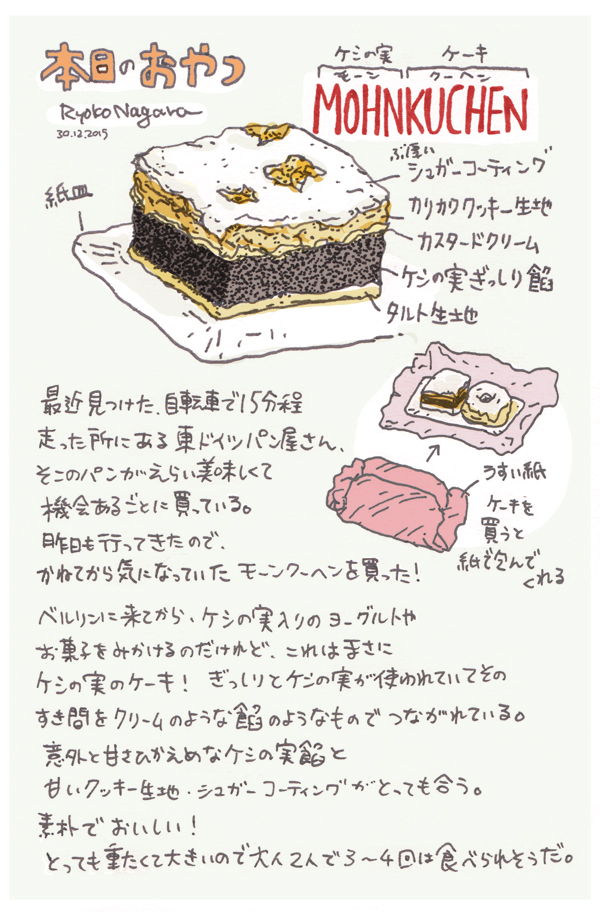 本日のおやつ
Ryoko Nagara
30.12.2015
ケシの実 ケーキ
モーン クーヘン
MOHNKUCHEN
紙皿
ぶ厚い
シュガーコーティング
カリカリクッキー生地
カスタードクリーム
ケシの実ぎっしり餡
タルト生地
最近見つけた、自転車で15分程
走った所にある東ドイツパン屋さん、
そこのパンがえらい美味しくて
機会あるごとに買っている。
昨日も行ってきたので、
かねてから気になっていたモーンクーヘンを買った!
うすい紙
ケーキを
買うと
紙で包んで
くれる
ベルリンに来てから、ケシの実入りのヨーグルトや
お菓子をみかけるのだけれど、これはまさに
ケシの実のケーキ! ぎっしりとケシの実が使われていてその
すき間をクリームのような餡のようなものでつながれている。
意外と甘さひかえめなケシの実餡と
甘いクッキー生地・シュガーコーティングがとっても合う。
素朴でおいしい!
とっても重たくて大きいので大人2人で3〜4回は食べられそうだ。